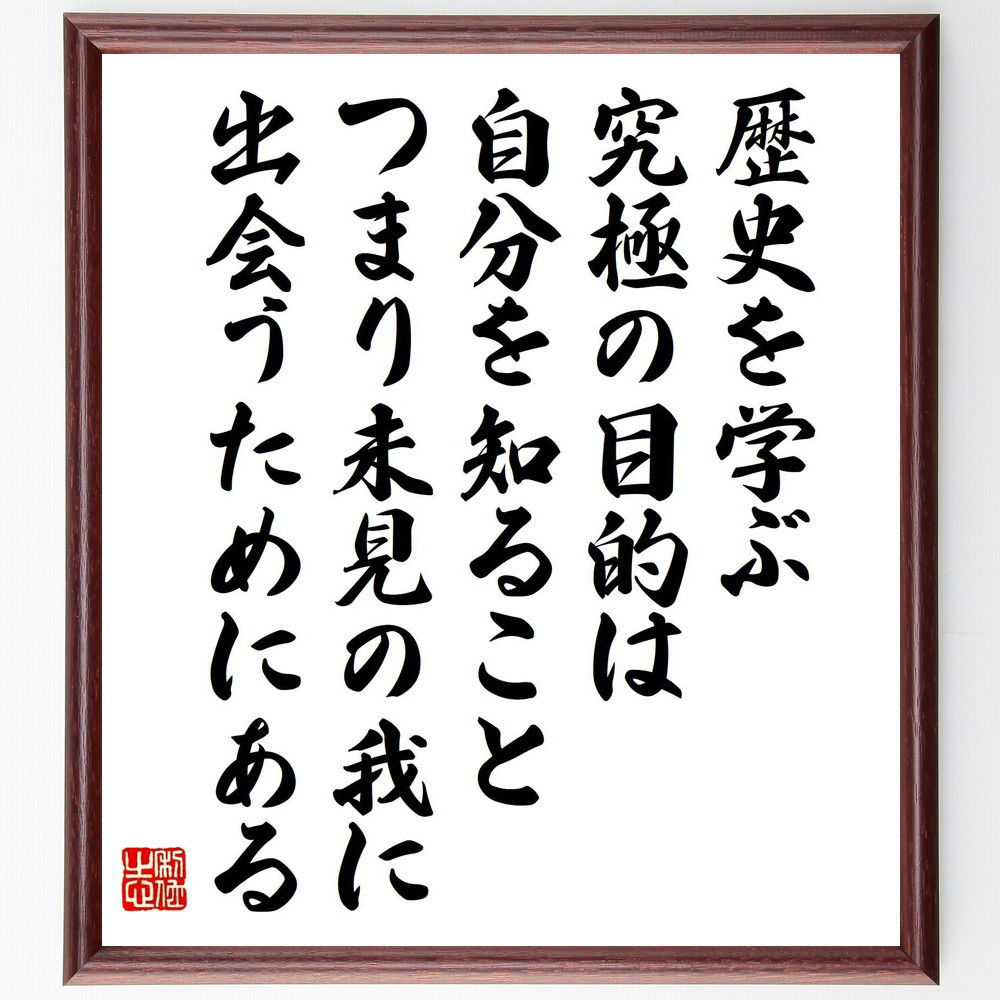 歴史を学ぶ
究極の目的は
自分を知ること
つまり未見の我に
出会うためにある